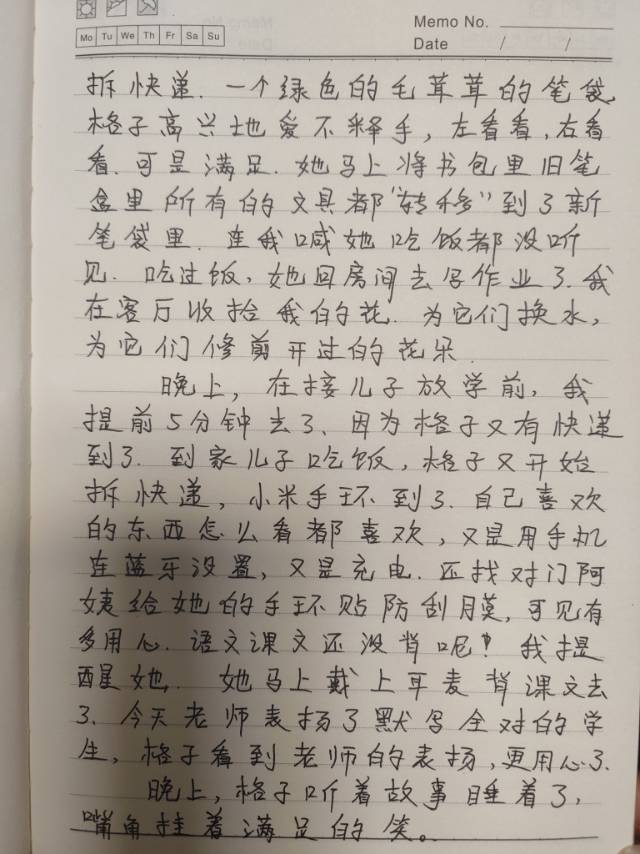 Memo No.
Mo Tu We Th Fr Sa Su
Date / /
拆快递.一个绿色的毛茸茸的笔袋,
格子高兴地爱不释手，左看看,右看
看.可是满足.她马上将书包里旧笔
盒里所有的文具都“转移”到了新
笔袋里.连我喊她吃饭都没听
见.吃过饭,她回房间去写作业了.我
在客厅收拾我的花.为它们换水，
为它们修剪开过的花朵.
晚上，在接儿子放学前,我
提前5分钟去了、因为格子又有快递
到了.到家儿子吃饭,格子又开始
拆快递，小米手环到了.自己喜欢
的东西怎么看都喜欢，又是用手机
连蓝牙设置，又是充电.还找对门阿
姨给她的手环贴防刮膜,可见有
多用心.语文课文还没背呢！我提
醒她.她马上戴上耳麦背课文去
了.今天老师表扬了默写全对的学
生，格子看到老师的表扬,更用心了.
晚上,格子听着故事睡着了,
嘴角挂着满足的笑。